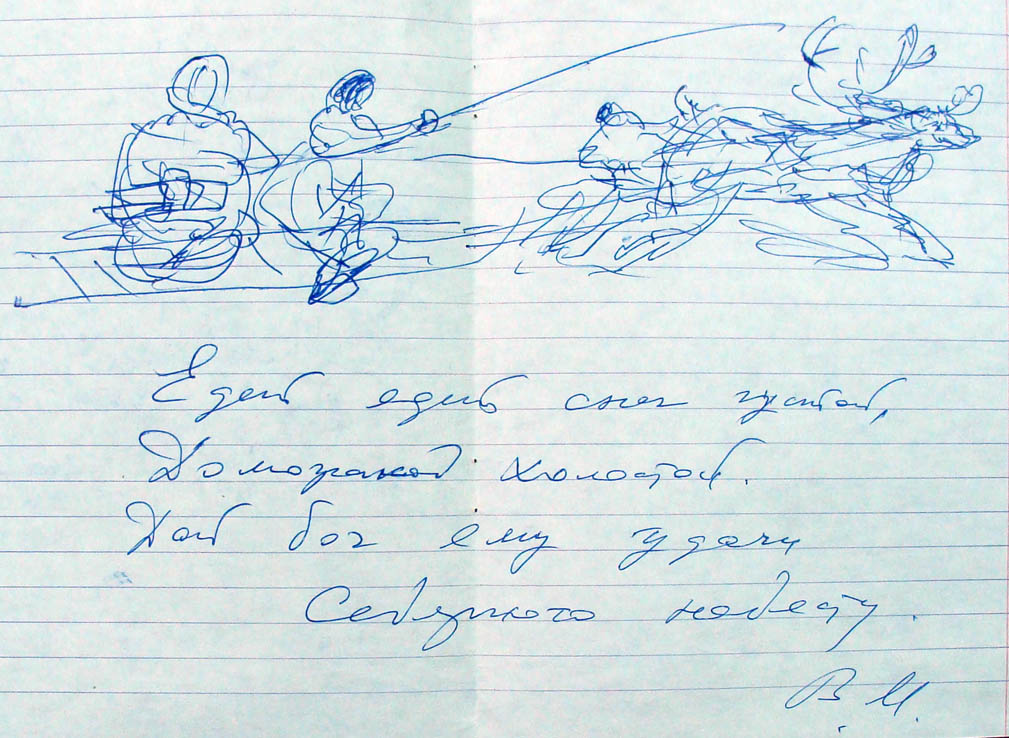 Едет едет снег густой,
Доможаков холостой.
Дай бог ему удачи
Северного невесту.
В. М.